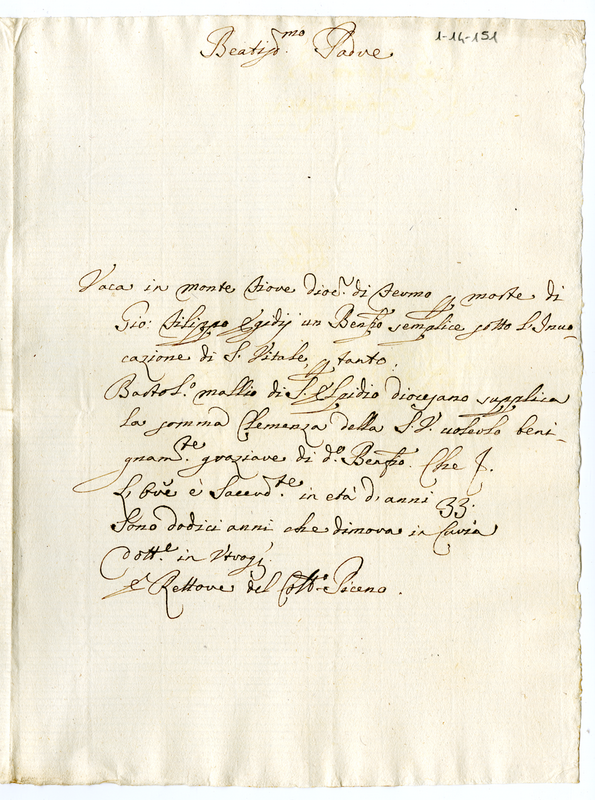 1-14-151
Beatiss.mo Padre
Vaca in monte Fiore dioc. di Fermo p morte di
Gio: Filippo Egidij un Benef.o semplice sotto l'Invo
cazione di S. Vitale, p tanto
Bartol.o mallio di S. Elpidio diocesano supplica
la somma Clemenza della S. V. volerlo beni-
gnam.te graziare di d.o Benef.o. Che
L'Ore è Sacerd.te in età d'anni 33.
Sono dodici anni che dimora in Curia
Dott.e in Utroq
è Rettore del Coll.o Piceno.